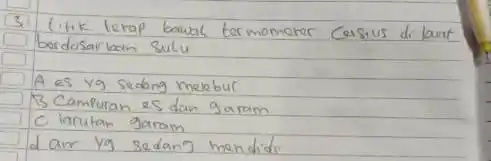 3. titik terap bawah termometer Celsius di buat
berdasarkan sulu
A es yg sedang melebur
B Campuran es dan garam
C larutan garam
d air yg sedang mendidi